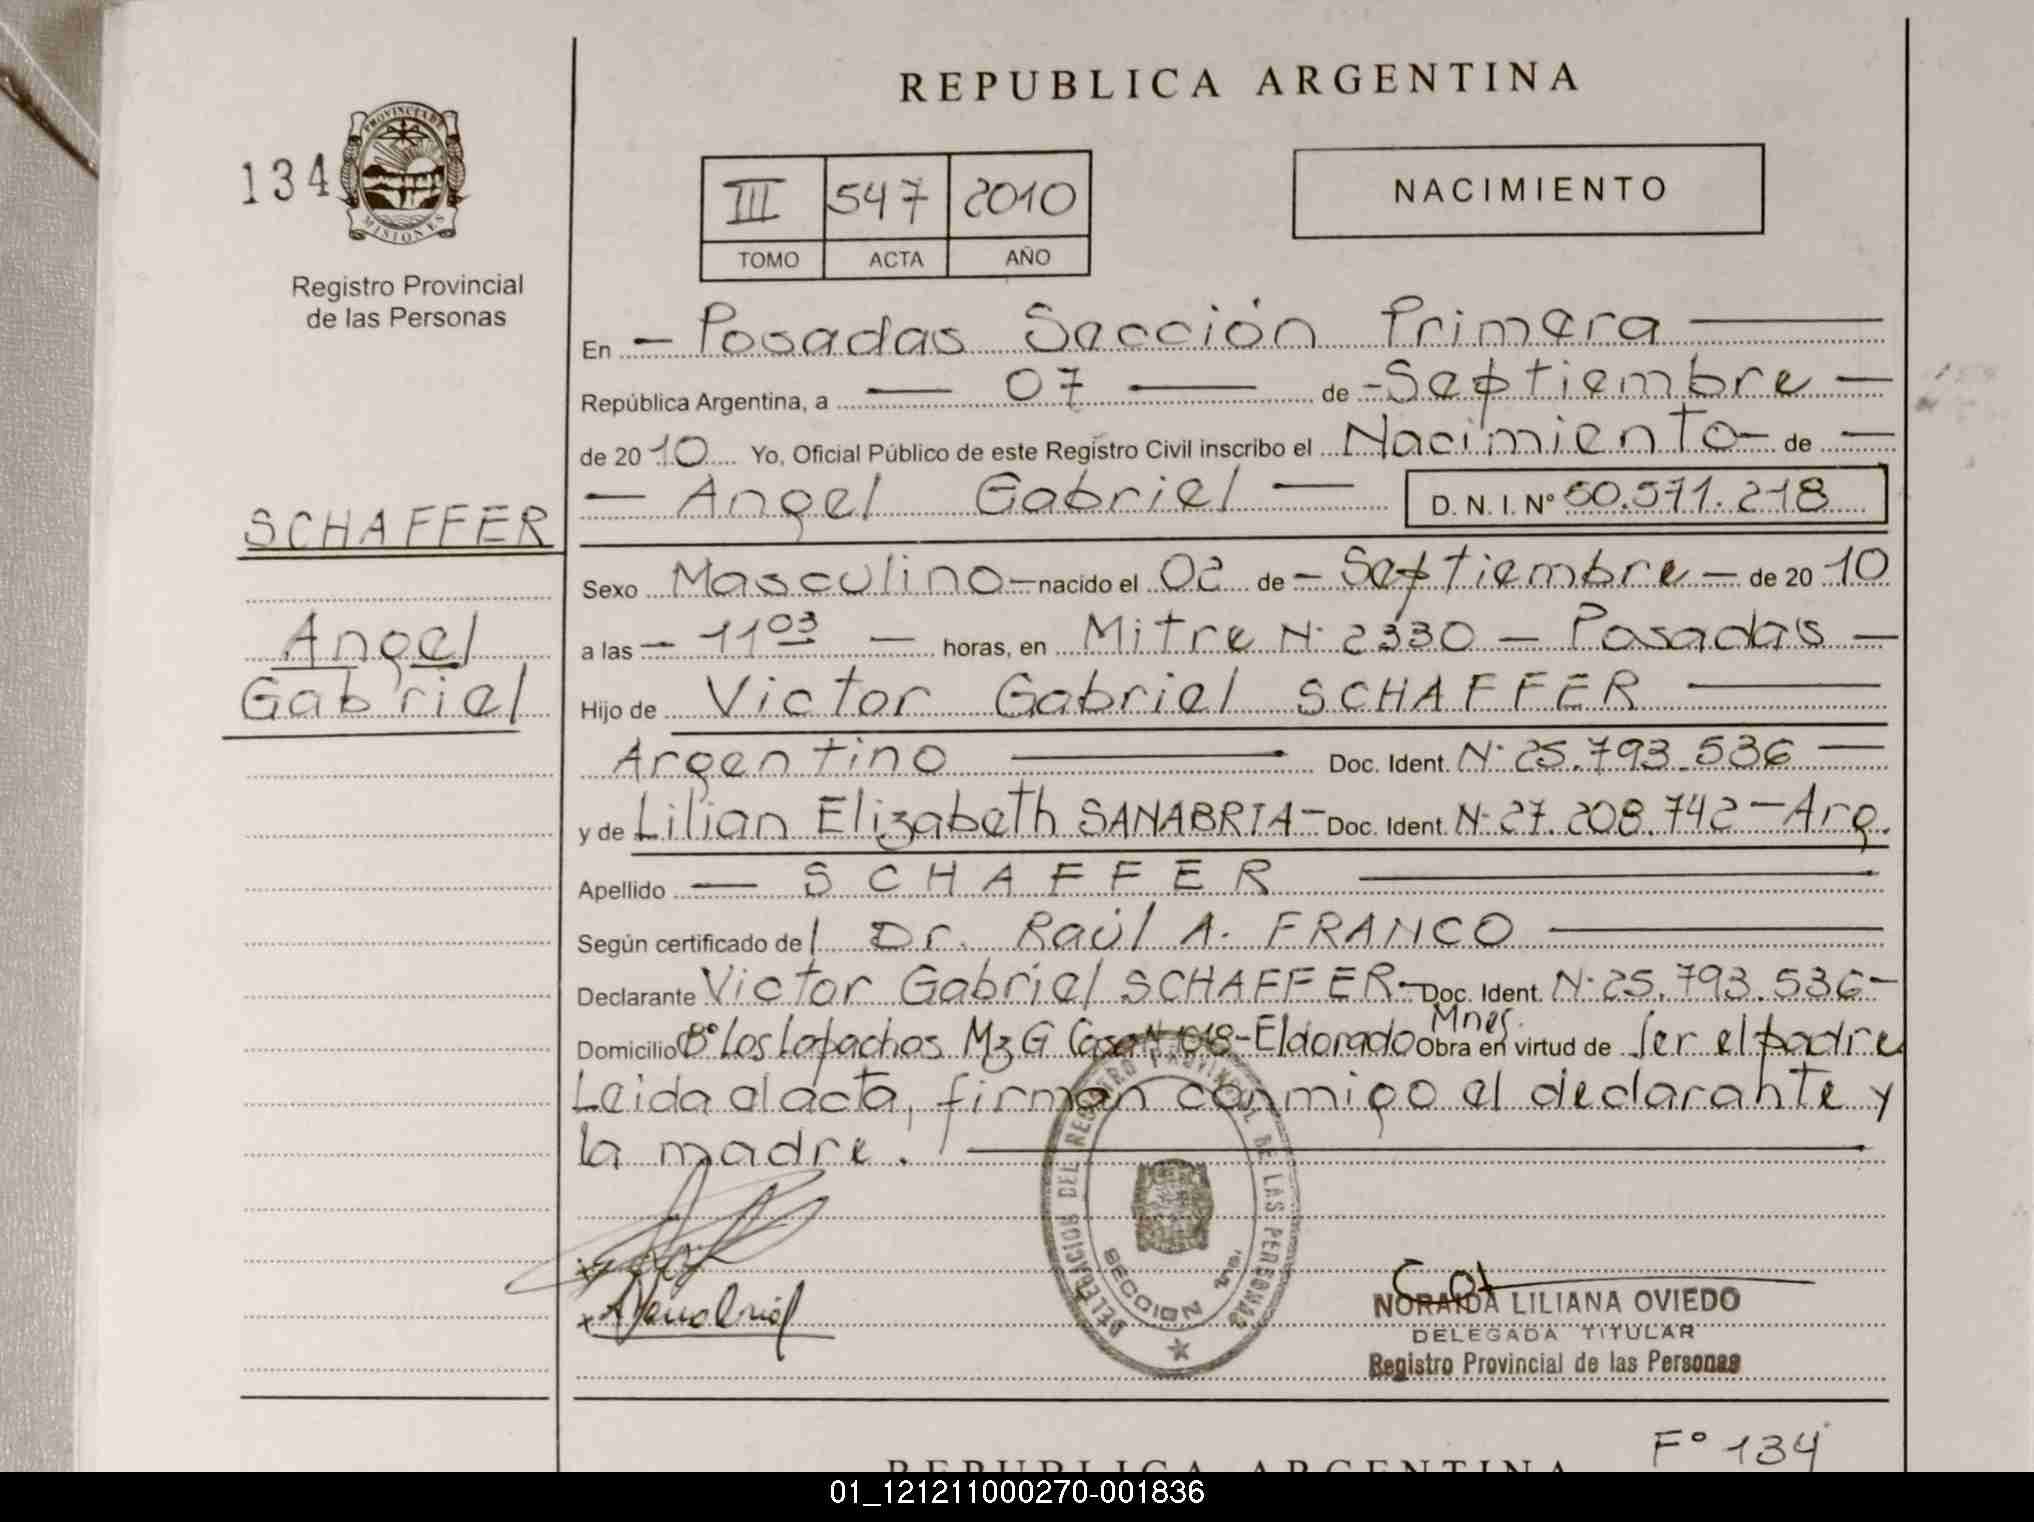 REPUBLICA ARGENTINA
134
PROVINCIA DE
MISIONES
Registro Provincial
de las Personas
III 547 2010
TOMO ACTA AÑO
NACIMIENTO
En - Posadas Sección Primera
República Argentina, a - 07 - de - Septiembre -
de 2010 Yo, Oficial Público de este Registro Civil inscribo el Nacimiento - de -
- Angel Gabriel - D. N. I. Nº 50.571.218
SCHAFFER
Angel
Gabriel
Sexo Masculino - nacido el 02 de - Septiembre - de 2010
a las - 11 03 - horas, en Mitre Nº 2330 - Posadas -
Hijo de Victor Gabriel SCHAFFER
Argentino Doc. Ident. Nº 25.793.536
y de Lilian Elizabeth SANABRIA - Doc. Ident. Nº 27.208.742 - Arg.
Apellido - SCHAFFER
Según certificado del Dr. Raúl A. FRANCO
Declarante Victor Gabriel SCHAFFER - Doc. Ident. Nº 25.793.536 -
Domicilio Bº Los Lapachos Mz G Casa Nº 1018 - Eldorado Mnes. Obra en virtud de ser el padre
Leida al acta, firman conmigo el declarante y
la madre.
DELEGACION DEL REGISTRO PROVINCIAL DE LAS PERSONAS
SECCION 1ra.
NORAIDA LILIANA OVIEDO
DELEGADA TITULAR
Registro Provincial de las Personas
Fº 134
REPUBLICA ARGENTINA
01_121211000270-001836